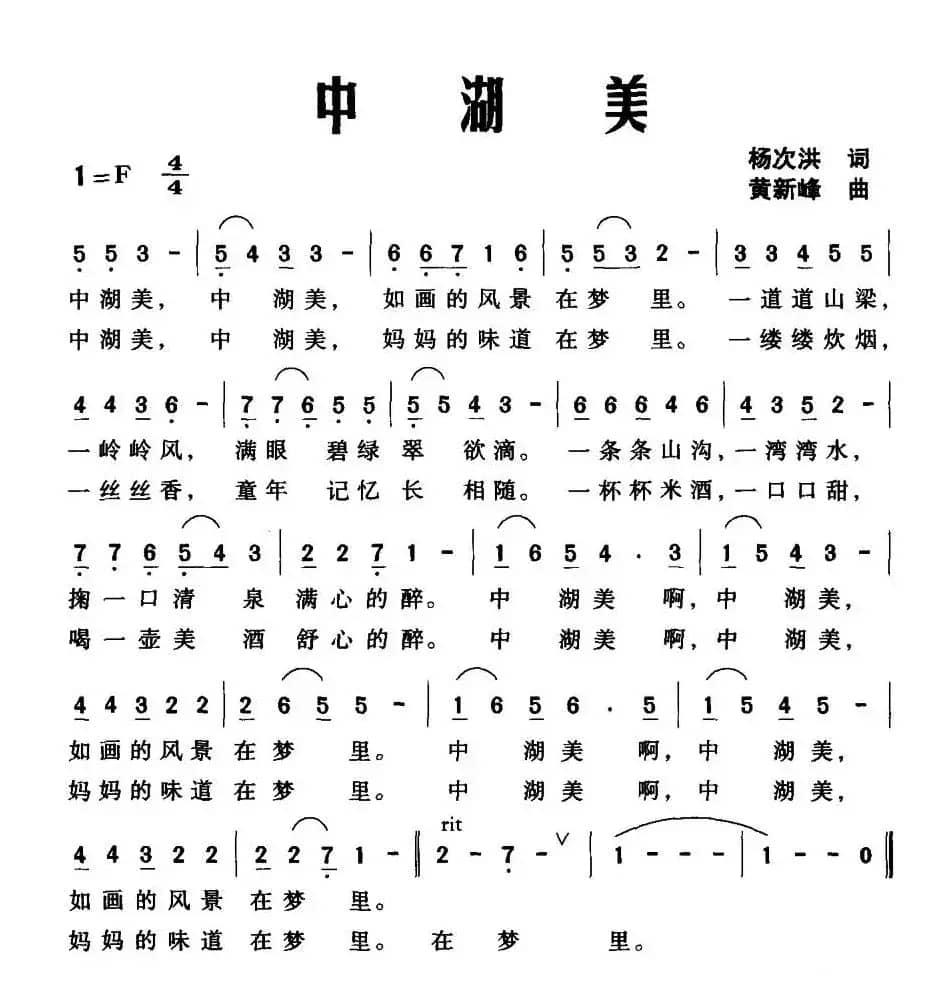 中湖美
1=F 4/4
杨次洪 词
黄新峰 曲
5 5 3 - | 5 4 3 3 - | 6 6 7 1 6 | 5 5 3 2 - | 3 3 4 5 5 |
中湖美, 中 湖美, 如画的风景 在梦 里。 一道道山梁,
中湖美, 中 湖美, 妈妈的味道 在梦 里。 一缕缕炊烟,
4 4 3 6 - | 7 7 6 5 5 | 5 5 4 3 - | 6 6 6 4 6 | 4 3 5 2 - |
一岭岭风, 满眼 碧绿 翠 欲滴。 一条条山沟, 一湾湾水,
一丝丝香, 童年 记忆 长 相随。 一杯杯米酒, 一口口甜,
7 7 6 5 4 3 | 2 2 7 1 - | 1 6 5 4 . 3 | 1 5 4 3 - |
掬一口清 泉 满心的醉。 中 湖美 啊, 中 湖美,
喝一壶美 酒 舒心的醉。 中 湖美 啊, 中 湖美,
4 4 3 2 2 | 2 6 5 5 - | 1 6 5 6 . 5 | 1 5 4 5 - |
如画的风景 在梦 里。 中 湖美 啊, 中 湖美,
妈妈的味道 在梦 里。 中 湖美 啊, 中 湖美,
rit
4 4 3 2 2 | 2 2 7 1 - ‖ 2 - 7 - ∨ | 1 - - - | 1 - - 0 ‖
如画的风景 在梦 里。
妈妈的味道 在梦 里。 在 梦 里。